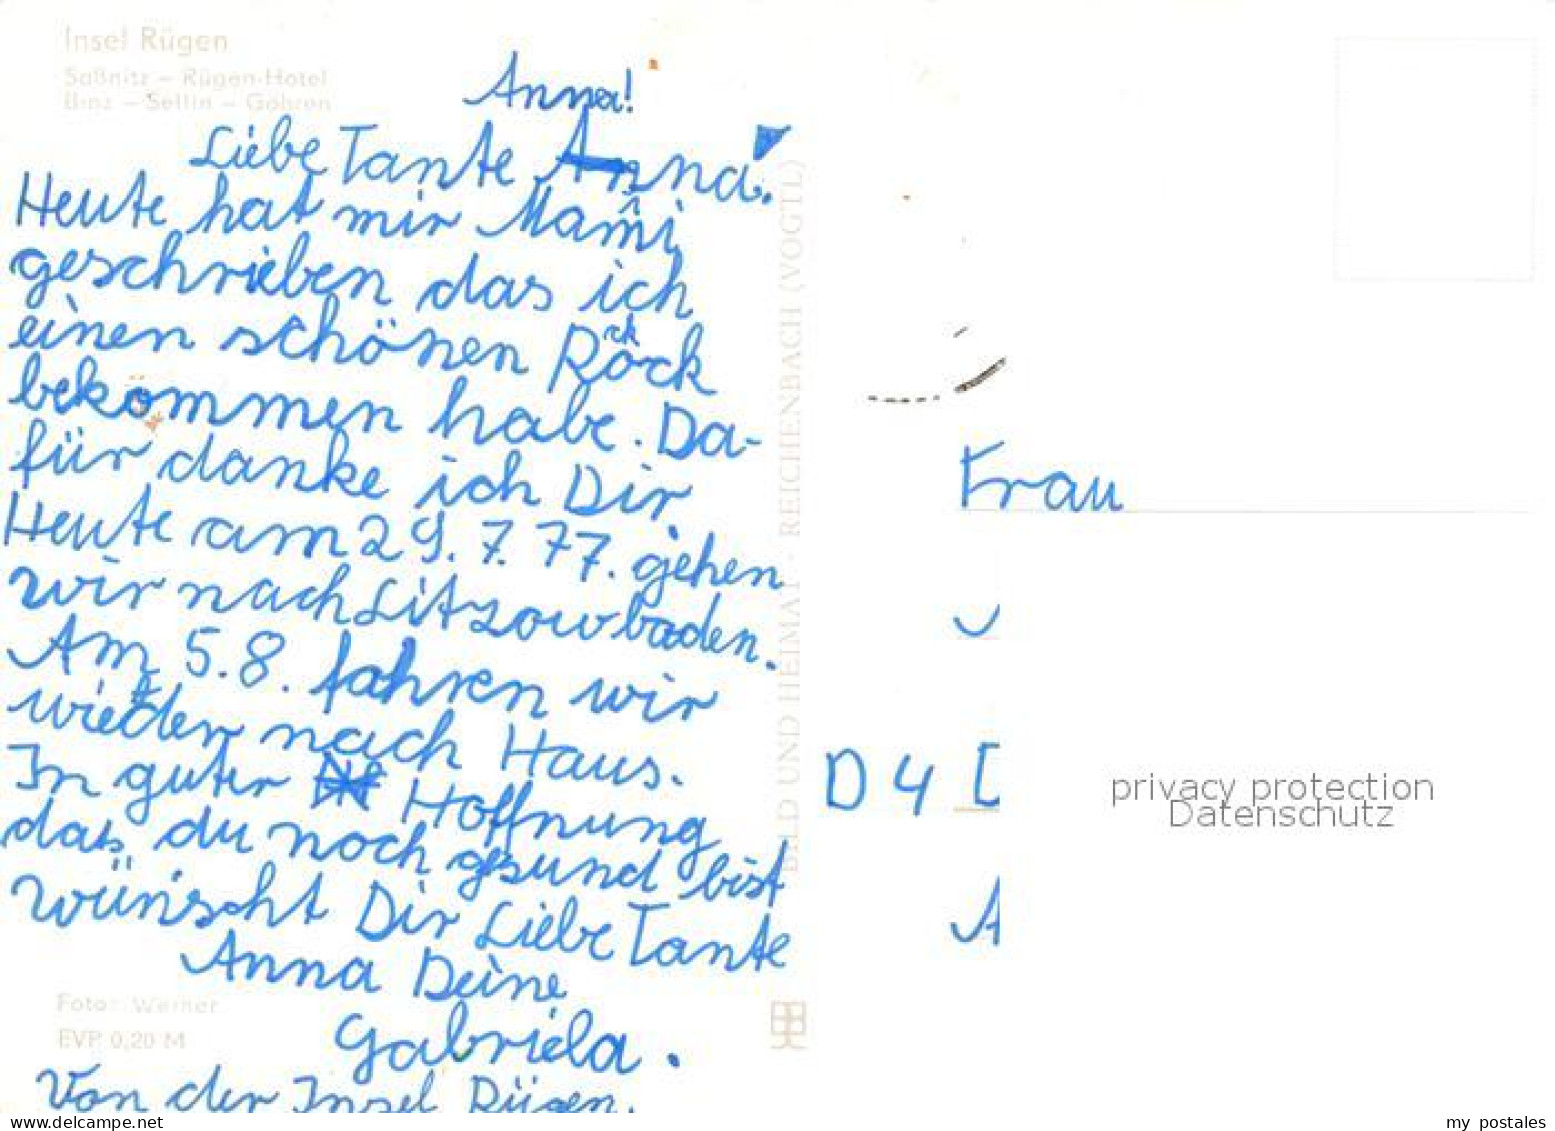 Insel Rügen
Saßnitz – Rügen-Hotel
Binz – Sellin – Göhren
Anna!
Liebe Tante Anna.
Heute hat mir Mami
geschrieben das ich
einen schönen Rock
bekommen habe. Da-
für danke ich Dir.
Heute am 29. 7. 77. gehen
wir nach Litzow baden.
Am 5. 8. fahren wir
wieder nach Haus.
In guter Hoffnung
das du noch gesund bist
wünscht Dir Liebe Tante
Anna Deine
Gabriela.
Von der Insel Rügen.
Foto: Werner
EVP 0,20 M
BILD UND HEIMAT · REICHENBACH (VOGTL)
Frau
D 4
A
privacy protection
Datenschutz
www.delcampe.net
my_postales